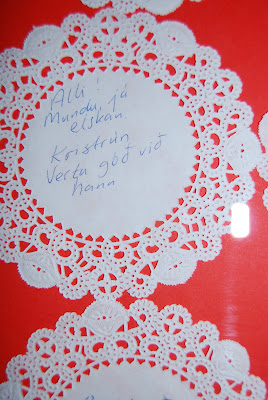 Alli!
Mundu, já
elskan
Kristrún
Vertu góð við
hana